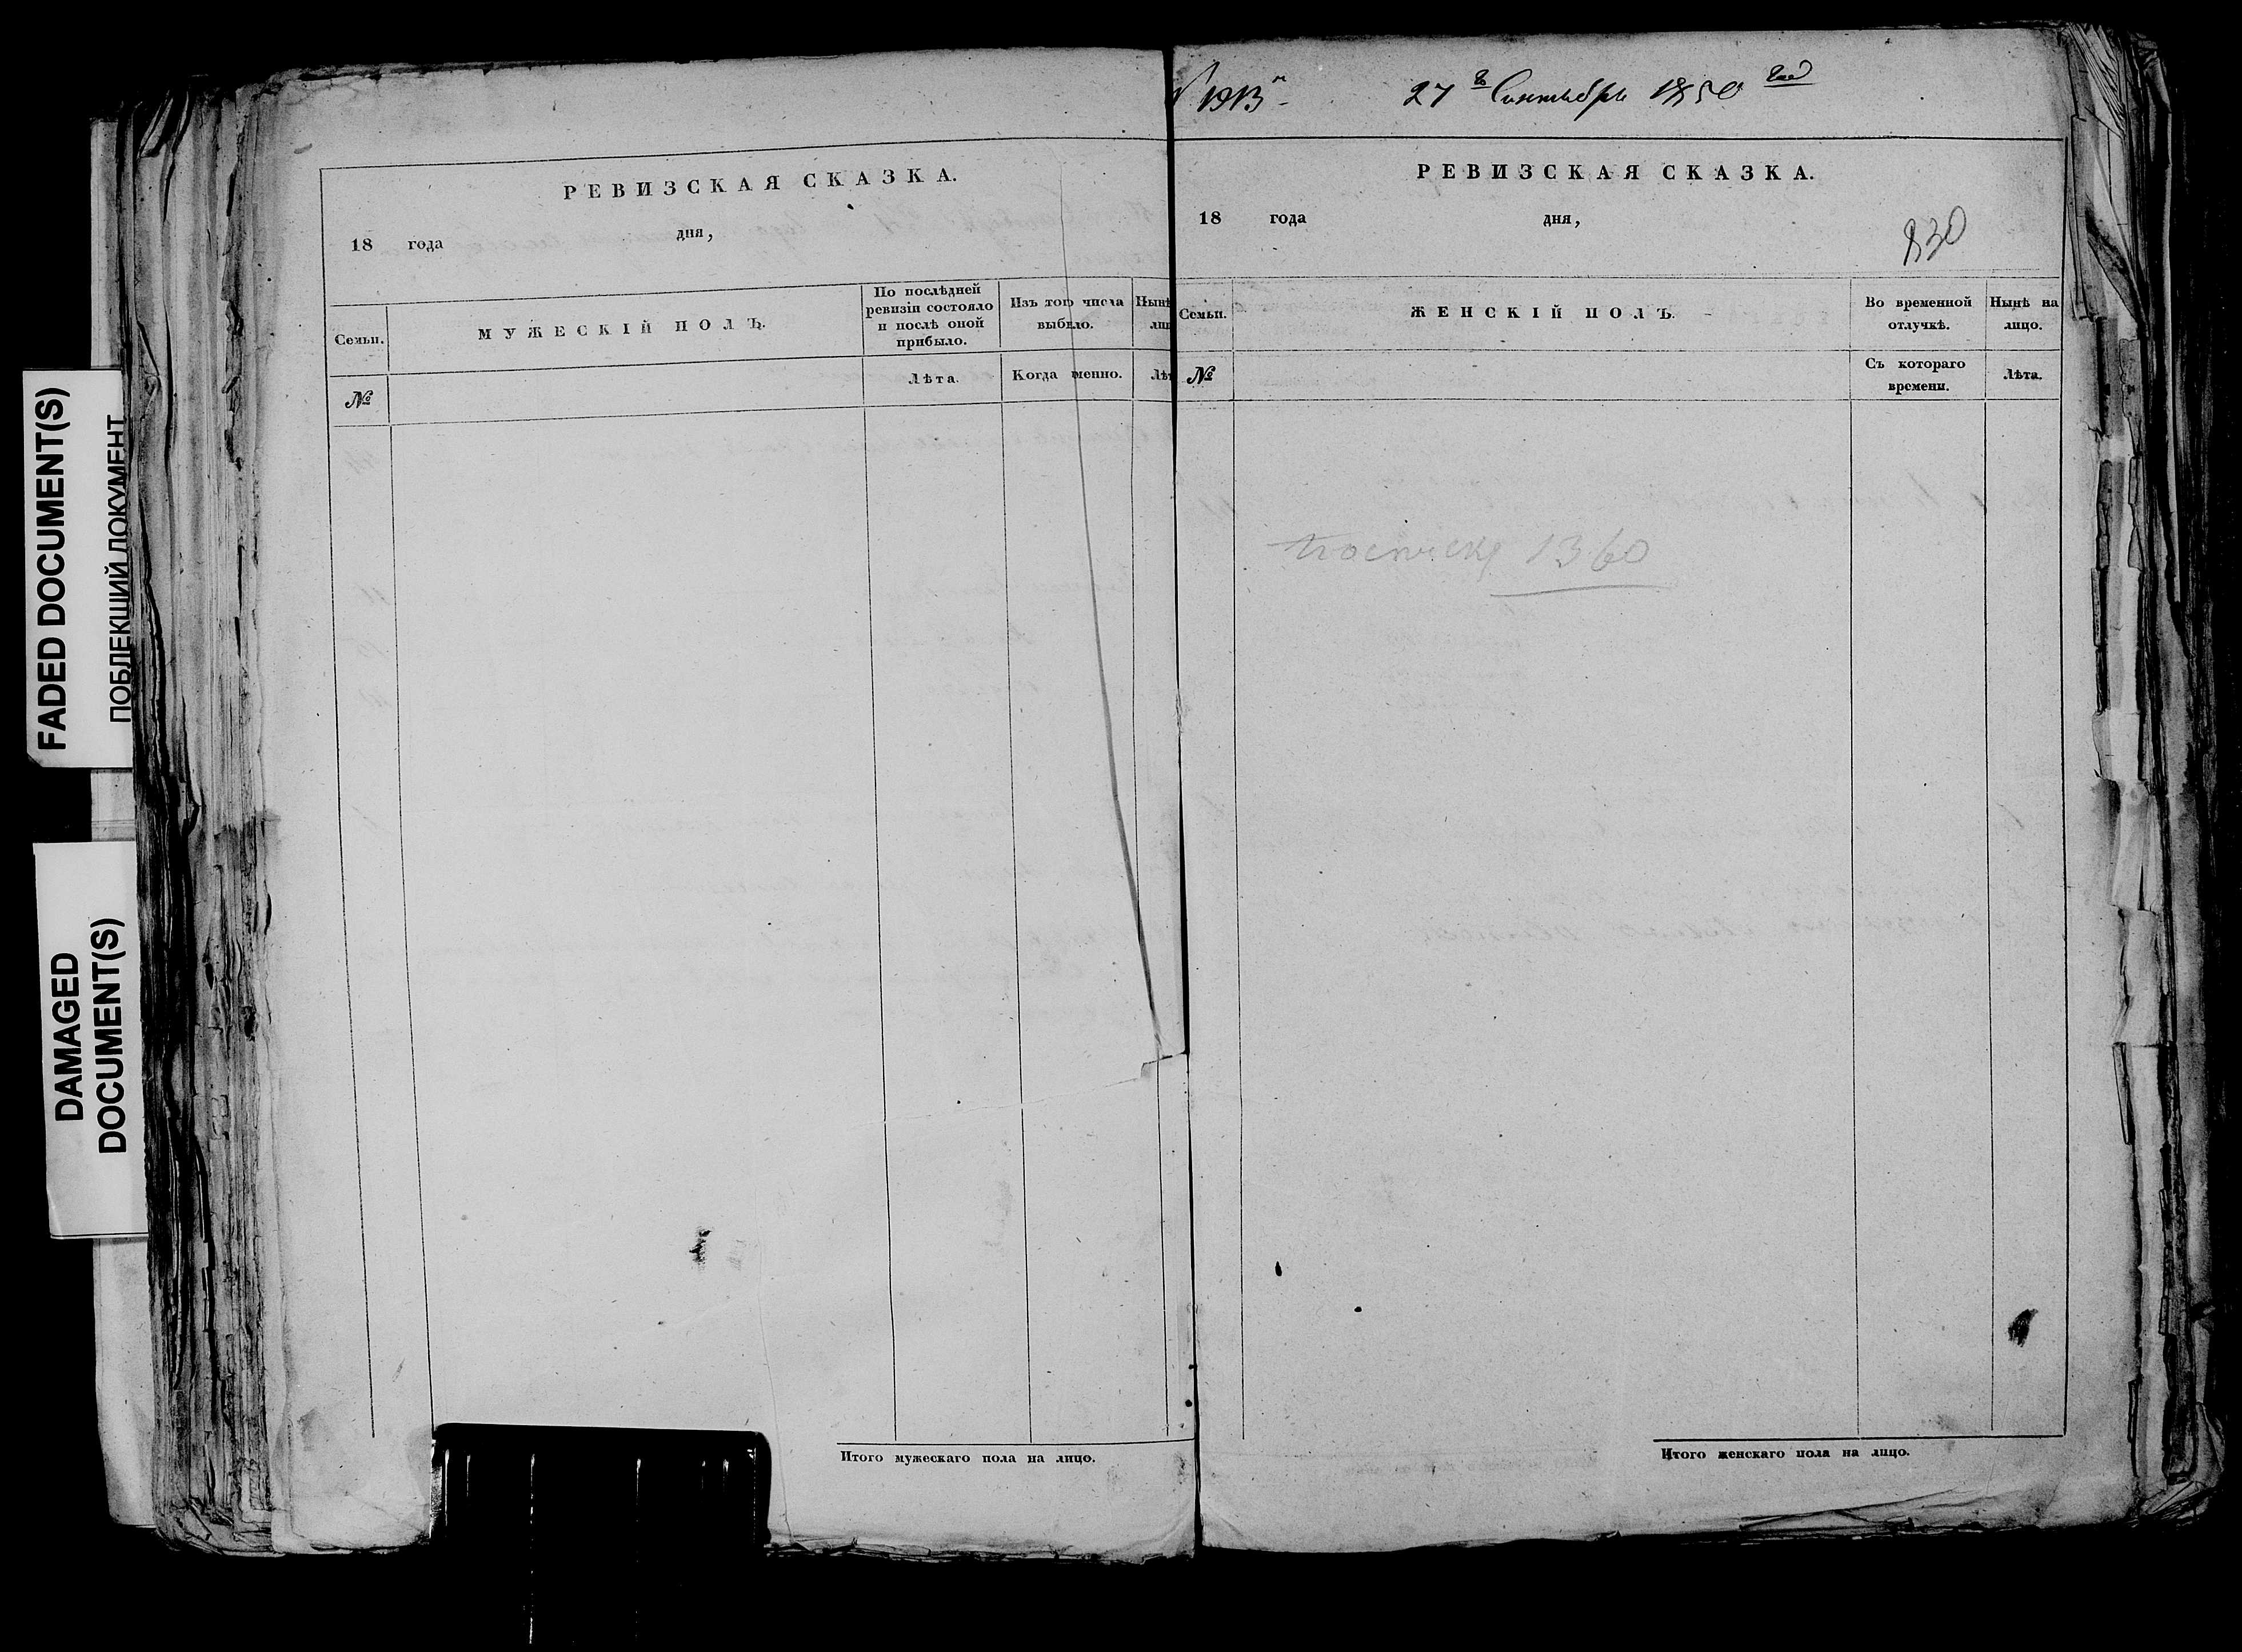 FADED DOCUMENT(S)
ПОБЛЕКШИЙ ДОКУМЕНТ
DAMAGED
DOCUMENT(S)
РЕВИЗСКАЯ СКАЗКА.
18 года дня,
Семьи.
МУЖЕСКІЙ ПОЛЪ.
По послѣдней
ревизіи состояло
и послѣ оной
прибыло.
Изъ того числа
выбыло.
Нынѣ
№
Лѣта.
Когда менно.
Лѣт
Итого мужескаго пола на лицо.
27 Сентября 1850
РЕВИЗСКАЯ СКАЗКА.
18 года дня,
830
Семьи.
ЖЕНСКІЙ ПОЛЪ.
Во временной
отлучкѣ.
Нынѣ на
лицо.
№
Съ котораго
времени.
Лѣта.
1360
Итого женскаго пола на лицо.